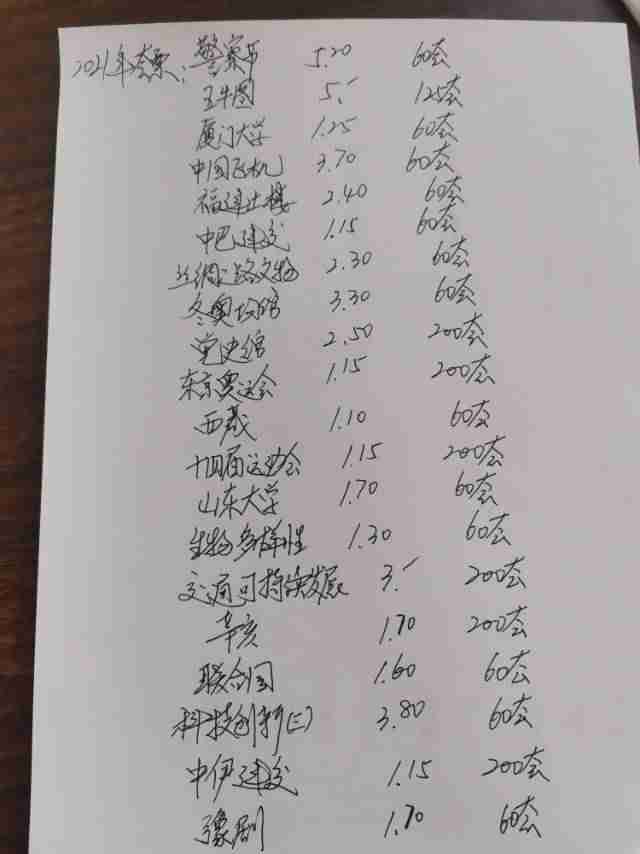 2021年套票: 警察节 5.20 60套
五牛图 5.- 125套
厦门大学 1.25 60套
中国飞机 3.70 60套
福建土楼 2.40 60套
中巴建交 1.15 60套
丝绸之路文物 2.30 60套
冬奥场馆 3.30 60套
党史馆 2.50 200套
东京奥运会 1.15 200套
西藏 1.10 60套
十四届运动会 1.15 200套
山东大学 1.70 60套
生物多样性 1.30 60套
交通可持续发展 3.- 200套
辛亥 1.70 200套
联合国 1.60 60套
科技创新(三) 3.80 60套
中伊建交 1.15 200套
豫剧 1.70 60套